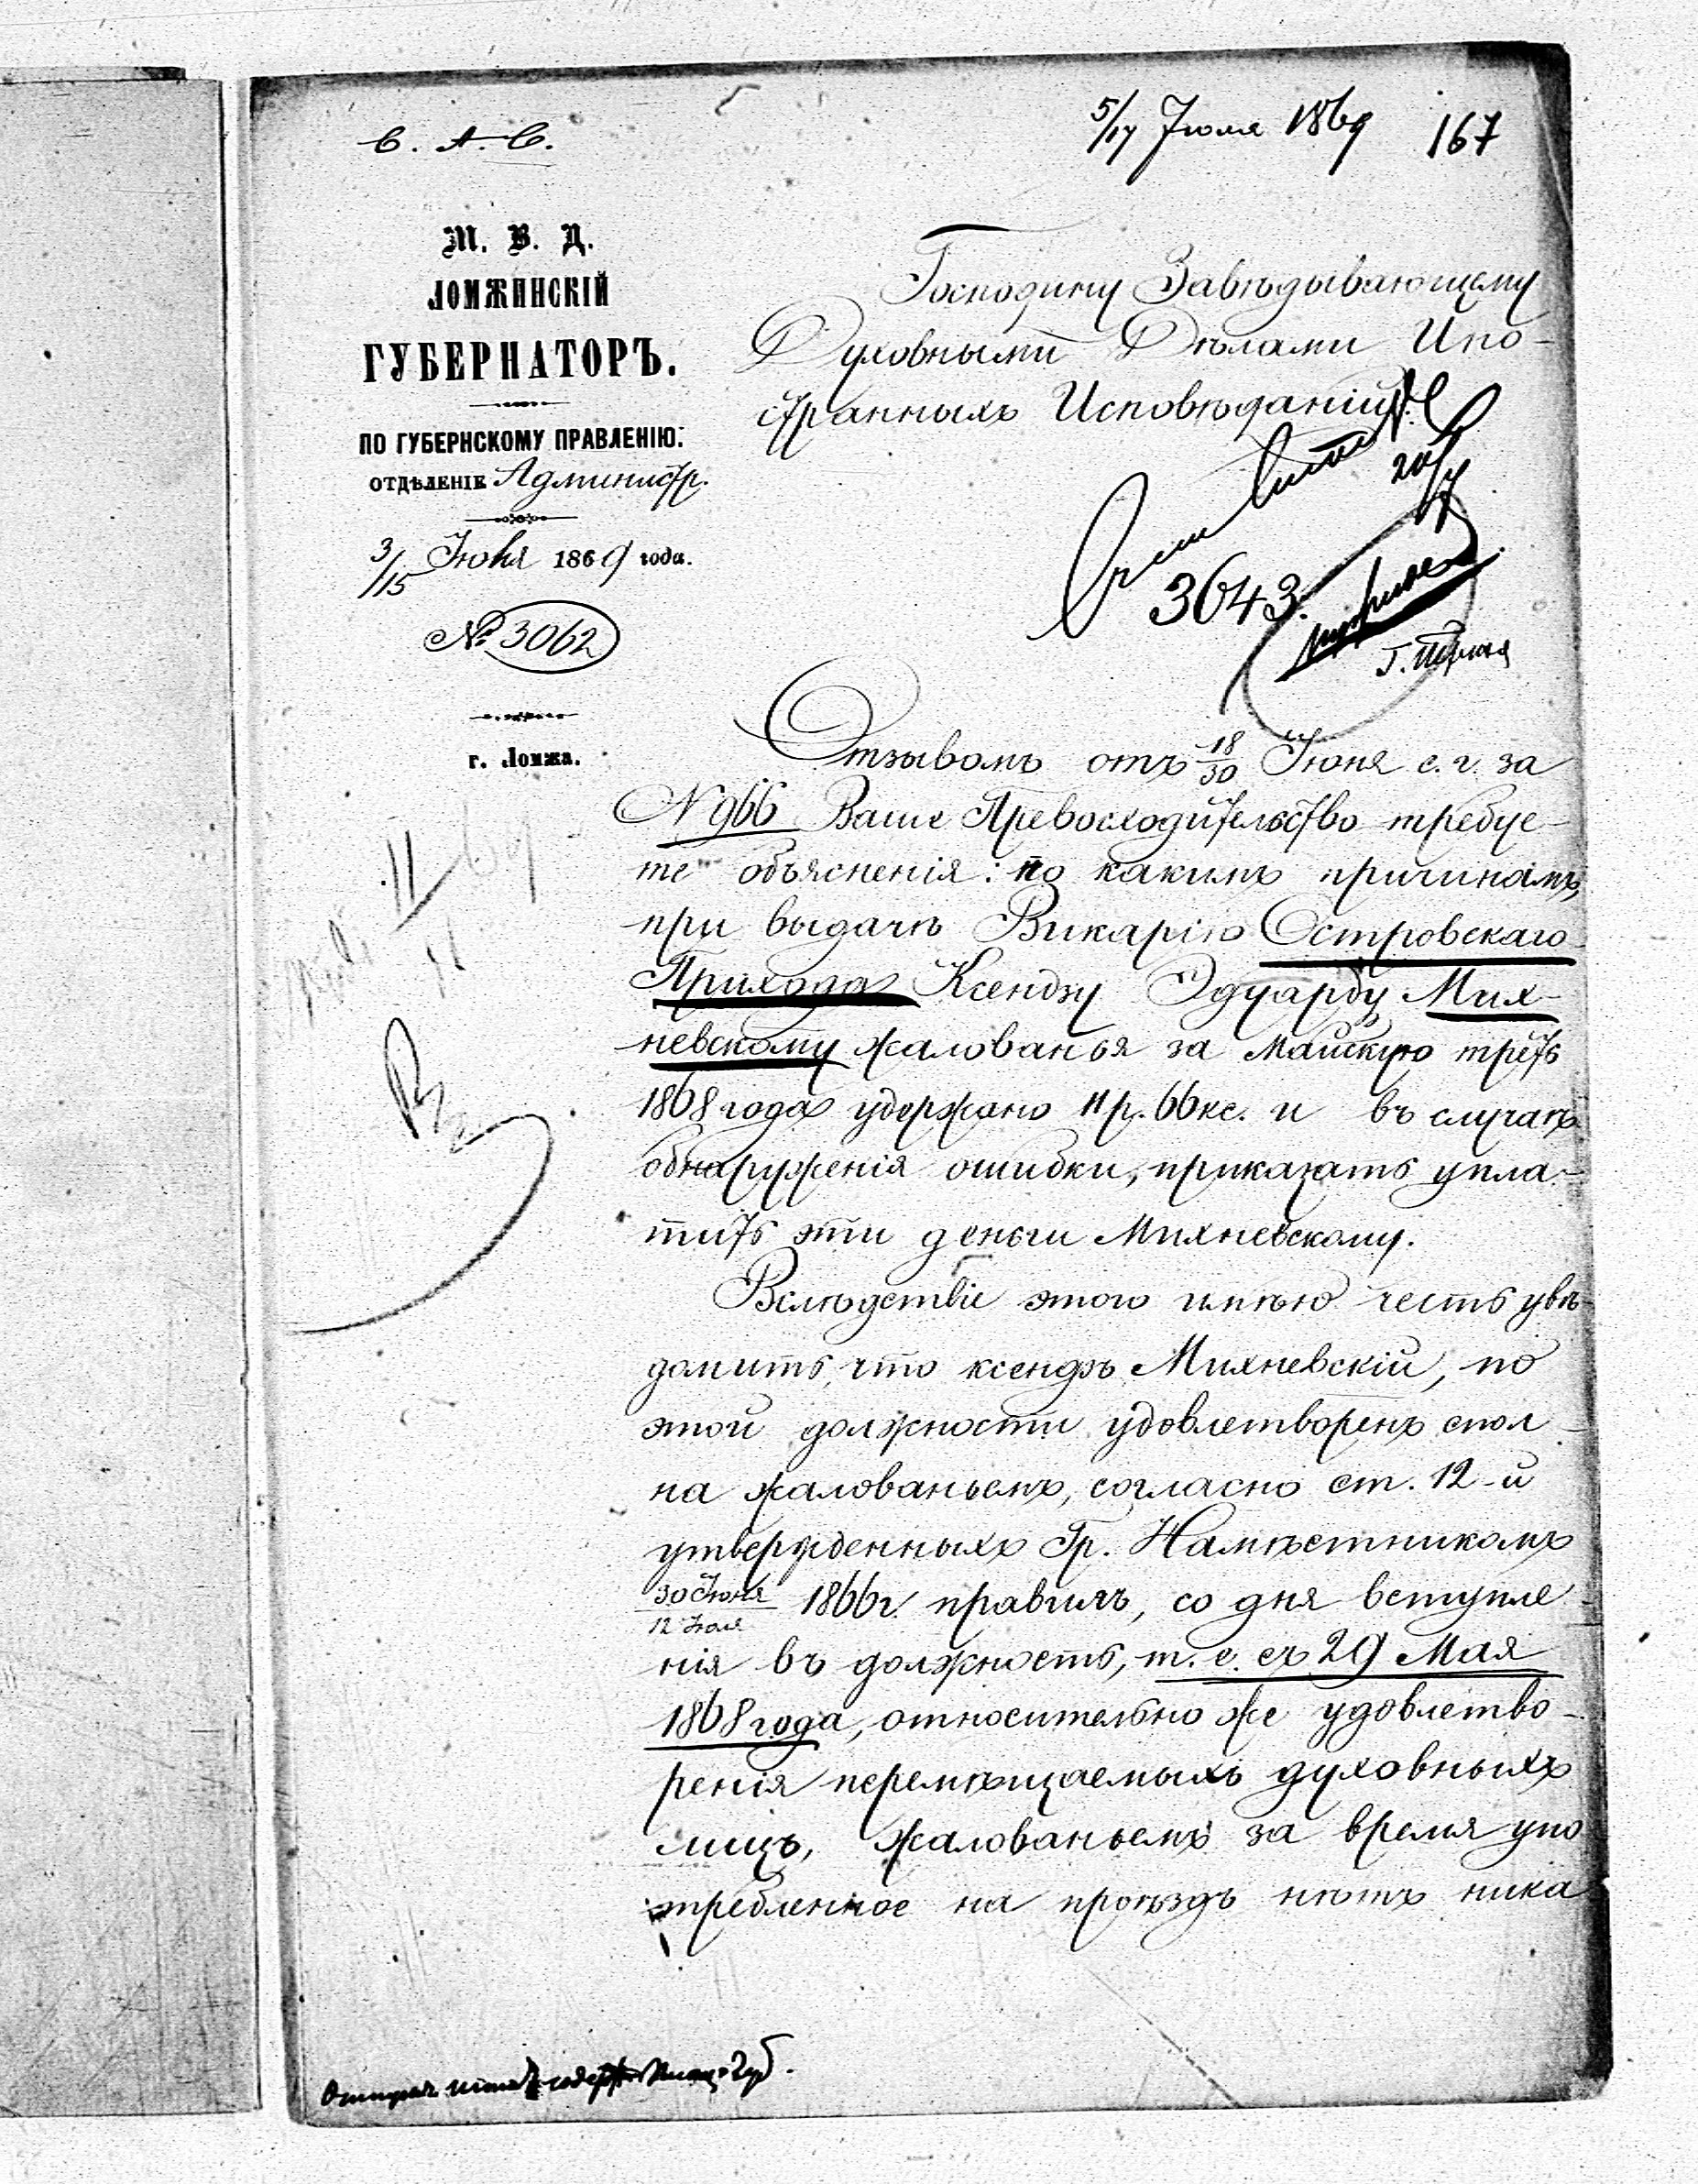 5/17 Іюля 1869
167
С. А. С.
М. В. Д.
ЛОМЖИНСКІЙ
ГУБЕРНАТОРЪ.
ПО ГУБЕРНСКОМУ ПРАВЛЕНІЮ.
ОТДѢЛЕНІЕ Администр.
3/15 Іюля 1869 года.
№ 3062
г. Ломжа.
Господину Завѣдывающему
Духовными Дѣлами Ино-
странныхъ Исповѣданій
3643.
Отзывомъ отъ 18/30 Іюня с. г. за
№ 966 Ваше Превосходительство требуе-
те объясненія: по какимъ причинамъ,
при выдачѣ Викарію Островскаго
Прихода Ксендзу Эдуарду Мих-
невскому жалованья за Майскую треть
1868 года удержано 11 р. 66 кс. и въ случаѣ
обнаруженія ошибки, приказать упла-
тить эти деньги Михневскому.
Вслѣдствіе этого имѣю честь увѣ-
домить, что ксендзъ Михневскій, по
этой должности удовлетворенъ спол-
на жалованьемъ, согласно ст. 12-й
утвержденныхъ Гр. Намѣстникомъ
30 Іюня/12 Іюля 1866 г. правилъ, со дня вступле-
нія въ должность, т. е. съ 29 Мая
1868 года, относительно же удовлетво-
ренія перемѣщаемыхъ духовныхъ
лицъ, жалованьемъ за время упо
требленное на проѣздъ нѣтъ ника